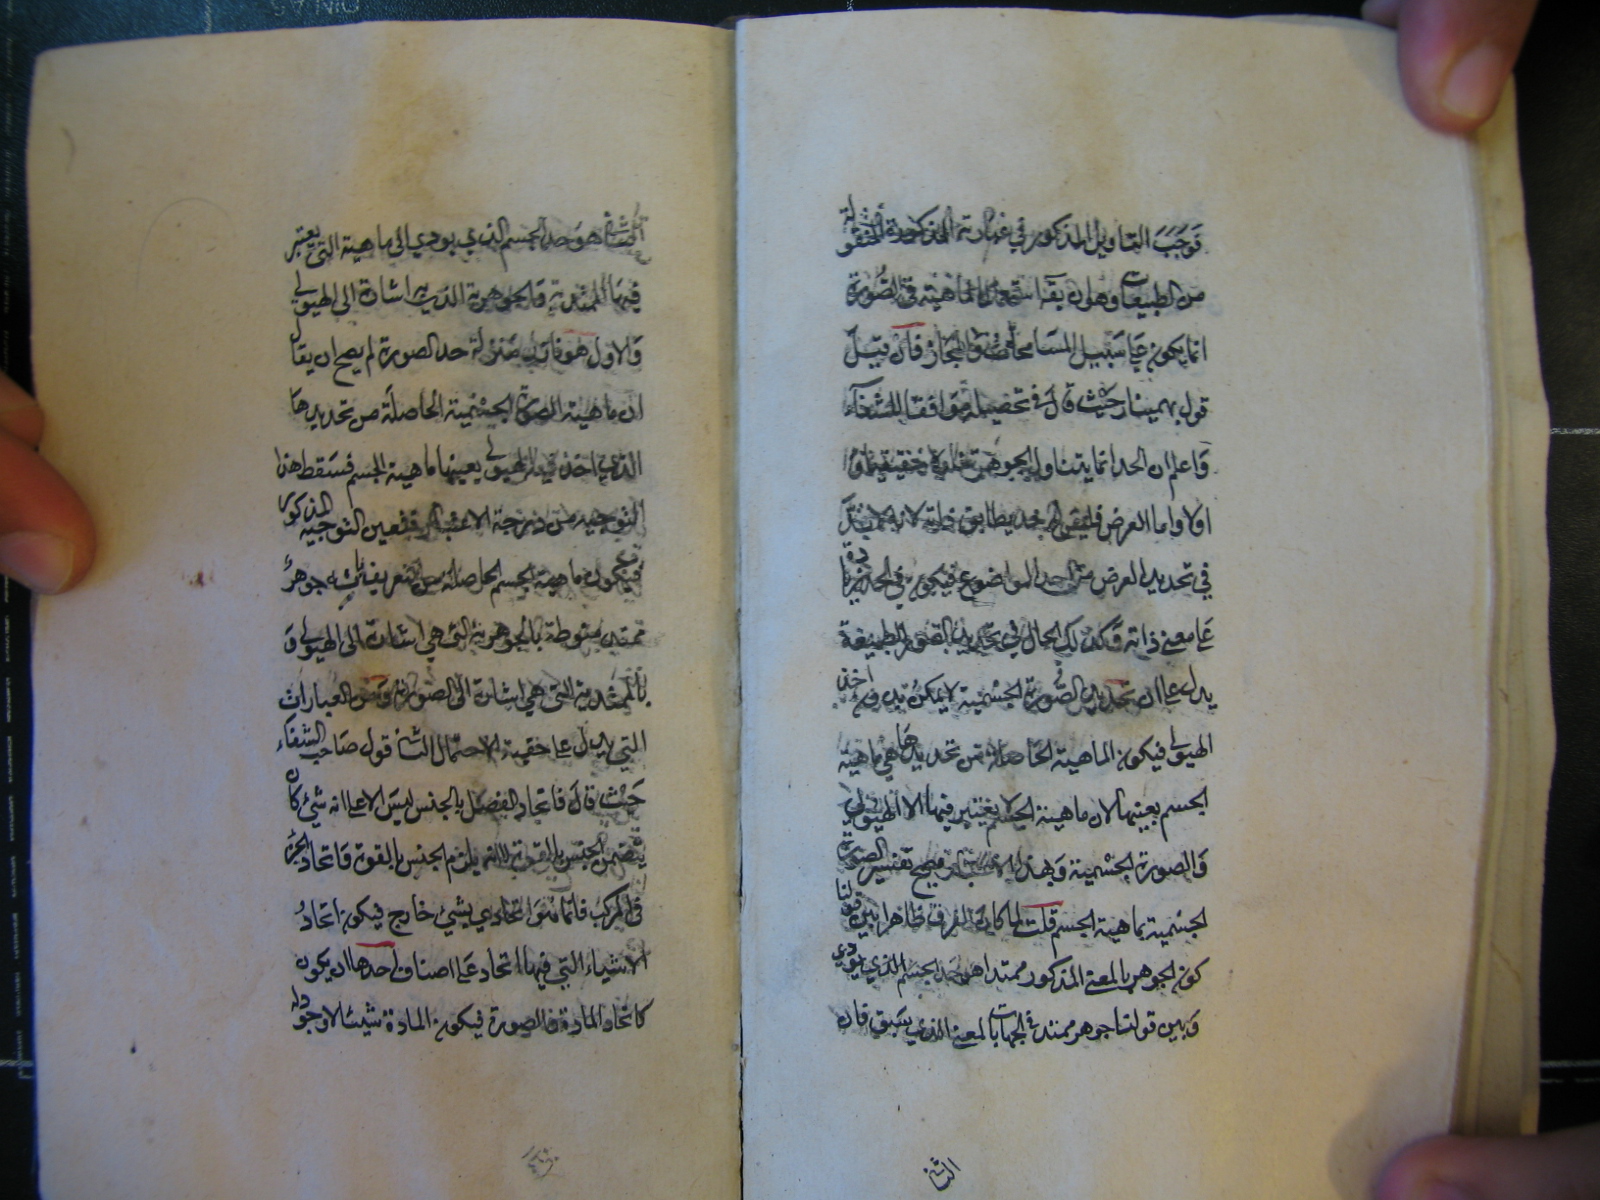 فوجب التاويل المذكور في عبارته المذكورة المنقولة
من الطبيعيات وهو ان يقال استعمال الماهية في الصورة
انما يكون على سبيل المسامحة والمجاز فان قيل
قول بهمنيار حيث قال في تحصيله موافقا للشفاء
واعلم ان الحد انما يتناول الجوهر تناولا حقيقيا
اولا واما العرض فليس له حد يطابق ذاته لانه لا بد
في تحديد العرض من اخذ الموضوع فيكون في الحد زيادة
على معنى ذاته وكذلك الحال في تحديد الصورة الطبيعية
يدل على ان تحديد الصورة الجسمية لا يمكن بدون اخذ
الهيولى فيكون الماهية الحاصلة من تحديدها هي ماهية
الجسم بعينها لان ماهية الجسم لا يعتبر فيها الا الهيولى
والصورة الجسمية وبهذا الاعتبار يصح تفسير الصورة
الجسمية بماهية الجسم قلت لما كان الفرق ظاهرا بين قولنا
كون الجوهر بالمعنى المذكور ممتدا هو حد الجسم الذي يؤدي
وبين قولنا جوهر ممتد في الجهات بالمعنى الذي يسبق فان
الثاني
الثاني هو حد الجسم الذي يودي الى ماهية التي يعتبر
فيها الممتدية والجوهرية التي اشارة الى الهيولى
والاول هو فانه بمنزلة حد الصورة لم يصح ان يقال
ان ماهية الصورة الجسمية الحاصلة من تحديدها
الذي اخذ فيه الهيولى بعينها ماهية الجسم فسقط هذا
التوجيه من درجة الاعتبار فتعين التوجيه المذكور
فيكون ماهية الجسم الحاصلة من التعريف بانه جوهر
ممتد منوطة بالجوهرية التي هي اشارة الى الهيولى و
بالممتدية التي هي اشارة الى الصورة ومن العبارات
التي يدل على حقية الاحتمال الثاني قول صاحب الشفاء
حيث قال فاتحاد الفصل بالجنس ليس الا على انه شيئ كان
يتضمن الجنس بالقوة لا انه يلزم الجنس بالقوة واتحاد الجزء
في المركب فانما هو اتحاد شيئ بشيئ خارج فيكون اتحاد
الاشياء التي فيها اتحاد على اصناف احدها ان يكون
كاتحاد المادة والصورة فيكون المادة شيئا لا وجود له